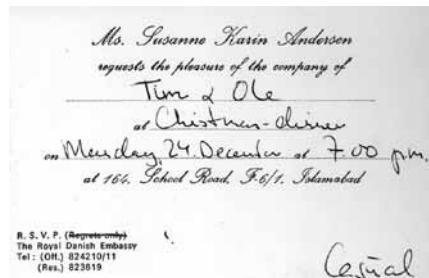 Ms. Susanne Karin Andersen
requests the pleasure of the company of
Tim & Ole
at Christmas-dinner
on Monday, 24. December at 7.00 p.m.
at 164, School Road, F.6/1, Islamabad
R. S. V. P. (Regrets only)
The Royal Danish Embassy
Tel : (Off.) 824210/11
(Res.) 823819
Casual